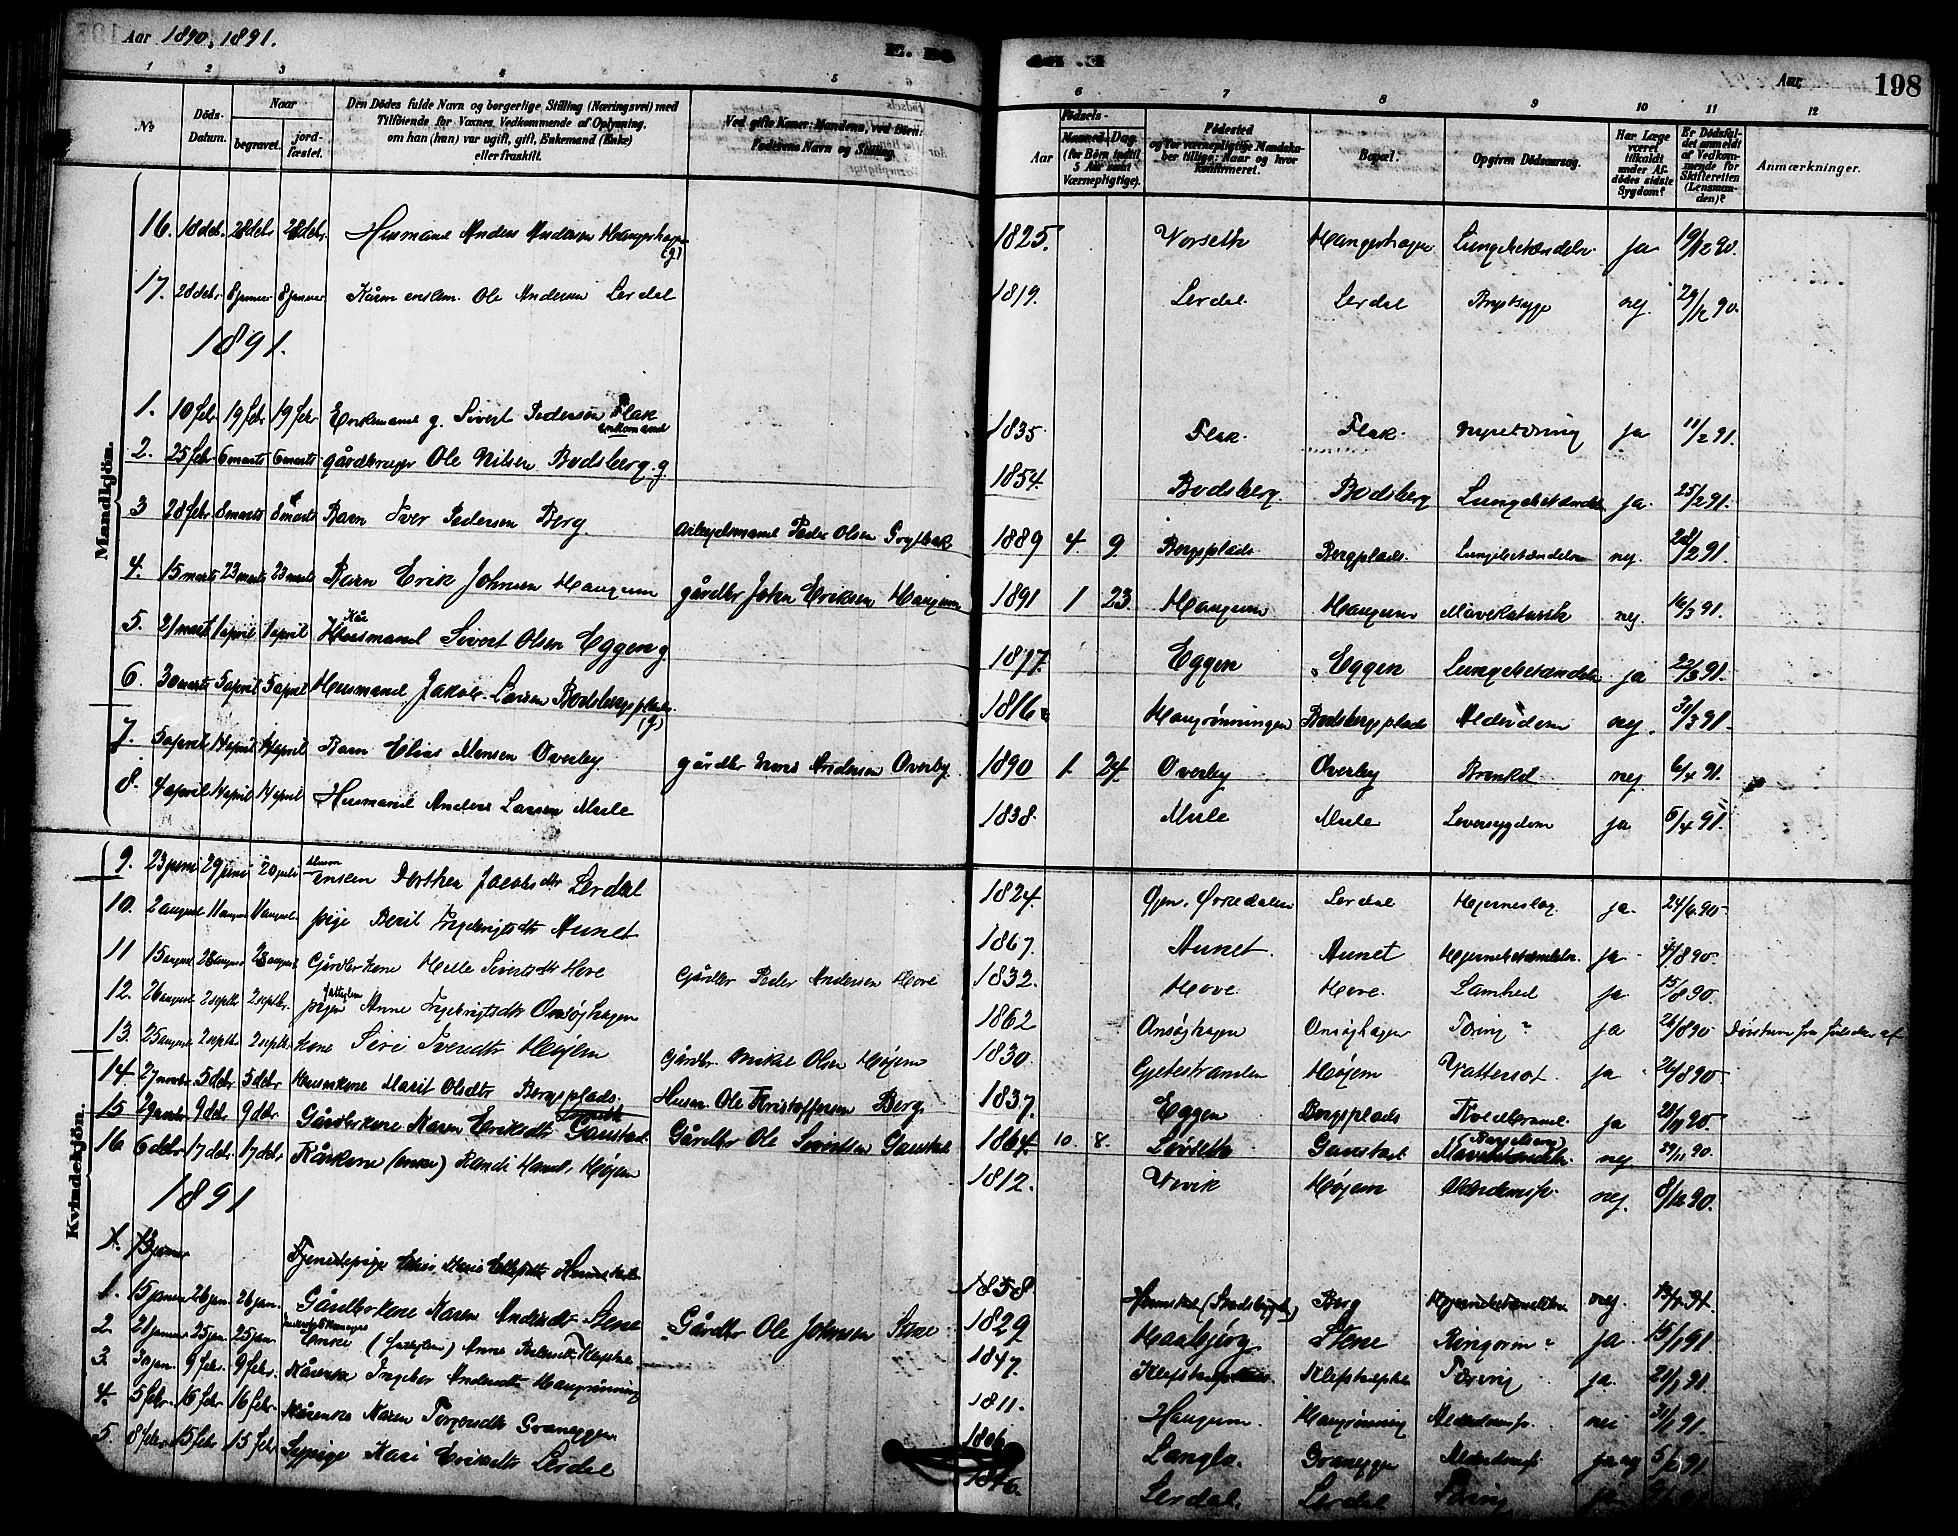 Aar 1890, 1891.
Aar
198
1 2 3 4 5 6 7 8 9 10 11 12
No
Döds-Datum.
Naar
begravet.
jordfæstet.
Den Dödes fulde Navn og borgerlige Stilling (Næringsvei) med Tilföiende for Voxnes Vedkommende af Oplysning, om han (hun) var ugift, gift, Enkemand (Enke) eller fraskilt.
Ved gifte Koner: Mandens, ved Börn: Faderens Navn og Stilling.
Födsels-
Aar
Maaned. Dag
(for Börn indtil 5 Aar samt Værnepligtige).
Födested
og for værnepligtige Mandskaber tillige: Naar og hvor konfirmeret.
Bopæl.
Opgiven Dödsaarsag.
Har Læge været tilkaldt under Afdödes sidste Sygdom?
Er Dödsfaldet anmeldt af Vedkommende for Skifteretten (Lensmanden)?
Anmærkninger.
Mandkjön.
16. 18 debr. 28 debr 28 debr. Husmand Anders Andersen Haugenhagen (g) 1825. Vorseth Haugenhagen Lungebetændelse ja 19/12 90.
17. 28 debr 8 januar 8 januar Kårm. enkem. Ole Andersen Lerdal 1819. Lerdal Lerdal Brystsyge nej 29/12 90.
1891.
1. 10 febr 19 febr 19 febr Enkemand g. Sivert Pedersen Flak enkemand 1835 Flak Flak ja 11/2 91.
2. 25 febr 6 marts 6 marts gårdbruger Ole Nilsen Bodsberg. g 1854. Bodsberg Bodsberg Lungebetændelse ja 25/2 91.
3 28 febr 8 marts 8 marts Barn Iver Pedersen Berg. Arbeidsmand Peder Olsen Grytbak 1889 4. 9 Bergsplads Bergsplads Lungebetændelse nej. 28/2 91.
4. 15 marts 23 marts 23 marts Barn Erik Johnsen Haugum gårdbr John Eriksen Haugum 1891 1 23 Haugum Haugum Mavekatarrh nej 16/3 91.
5. 21 mart 1 april 1 april Kår Husmand Sivert Olsen Eggen g 1817. Eggen Eggen Lungebetændelse ja 22/3 91.
6. 30 marts 5 april 5 april Husmand Jakob Larsen Bodsbergsplads (g) 1816 Haugrønningen Bodsbergsplads Alderdom nej 31/3 91.
7. 5 april 14 april 14 april Barn Elias Monsen Overby gårdbr Mons Andersen Overby 1890 1 24 Overby Overby Bronkit nej 6/4 91.
8. 4 april 14 april 14 april Husmand Anders Larsen Mule 1838. Mule Mule Leversygdom ja 5/4 91.
Kvindekjön.
9. 23 juni 29 juni 20 juli enken Dorthea Jacobsdtr Lerdal 1824. Lerdal Hjerneslag ja 24/6 90
10. 2 august 11 august 11 august pige Beril Ingebrigtsdtr Aunet 1867. Aunet Aunet Hjernebetændelse ja 4/8 90.
11 15 august 23 august 23 august Gårdbrkone Helle Sivertsdtr Hove Gårdbr Peder Andersen Hove 1832. Hove Hove Lamhed ja 15/8 90.
12. 26 august 2 septbr 2 septbr pige Anne Ingebrigtsdtr Onsøjhagen 1862 Onsøjhagen Onsøjhagen Tæring ja 26/8 90
13. 25 august 2 septbr 2 septbr kone Siri Iversdtr Højem Gårdbr. Mikal Olsen Højem 1830. Gjetestranden Højem Vattersot ja 26/8 90
14. 27 novbr 5 debr 5 debr Huuskone Marit Olsdtr Bergsplads. Husm. Ole Kristoffersen Berg. 1837. Eggen Bergsplads ja 28/11 90.
15 29 novbr 9 debr 9 debr Gårdbrkone Maren Eriksdtr Gaustad Gårdbr Ole Sivertsen Gaustad 1864. 10. 8. Løvseth Gaustad (Barselseng) nej 29/11 90.
16 6 debr 17 debr 17 debr Kårkone (enke) Randi Hansdtr Højem 1812. Vivik Højem Alderdomssv. nej. 8/12 90.
1891
1. Tjenestepige Hemnskel 1858. Hemnskel (Stadsbygden) Berg Hjernebetændelse nej.
1. 15 januar 26 jan. 26 jan. Gårdbrkone Maren Andersdtr Stene Gårdbr Ole Johnsen Stene 1829 Haabjørg Stene Ringorm ja 15/1 91.
2. 21 januar 25 jan. 25 jan Enke (fattiglem) Anne 1847. Tæring ja. 21/1 91.
3. 30 jan. 9 febr. 9 febr. Kårenke Ingebor Andersdtr Haugrønning 1811. Haugum. Haugrønning Alderdomssv. nei 31/1 91.
4. 5 febr. 16 febr 16 febr. Kårenke Maren Torgersdtr Graneggen 1806 Langlo. Graneggen Alderdomssv. 5/2 91
5. 8 febr. 15 febr 15 febr. Sypige Kari Eriksdtr Lerdal 1846. Lerdal. Lerdal Tæring ja